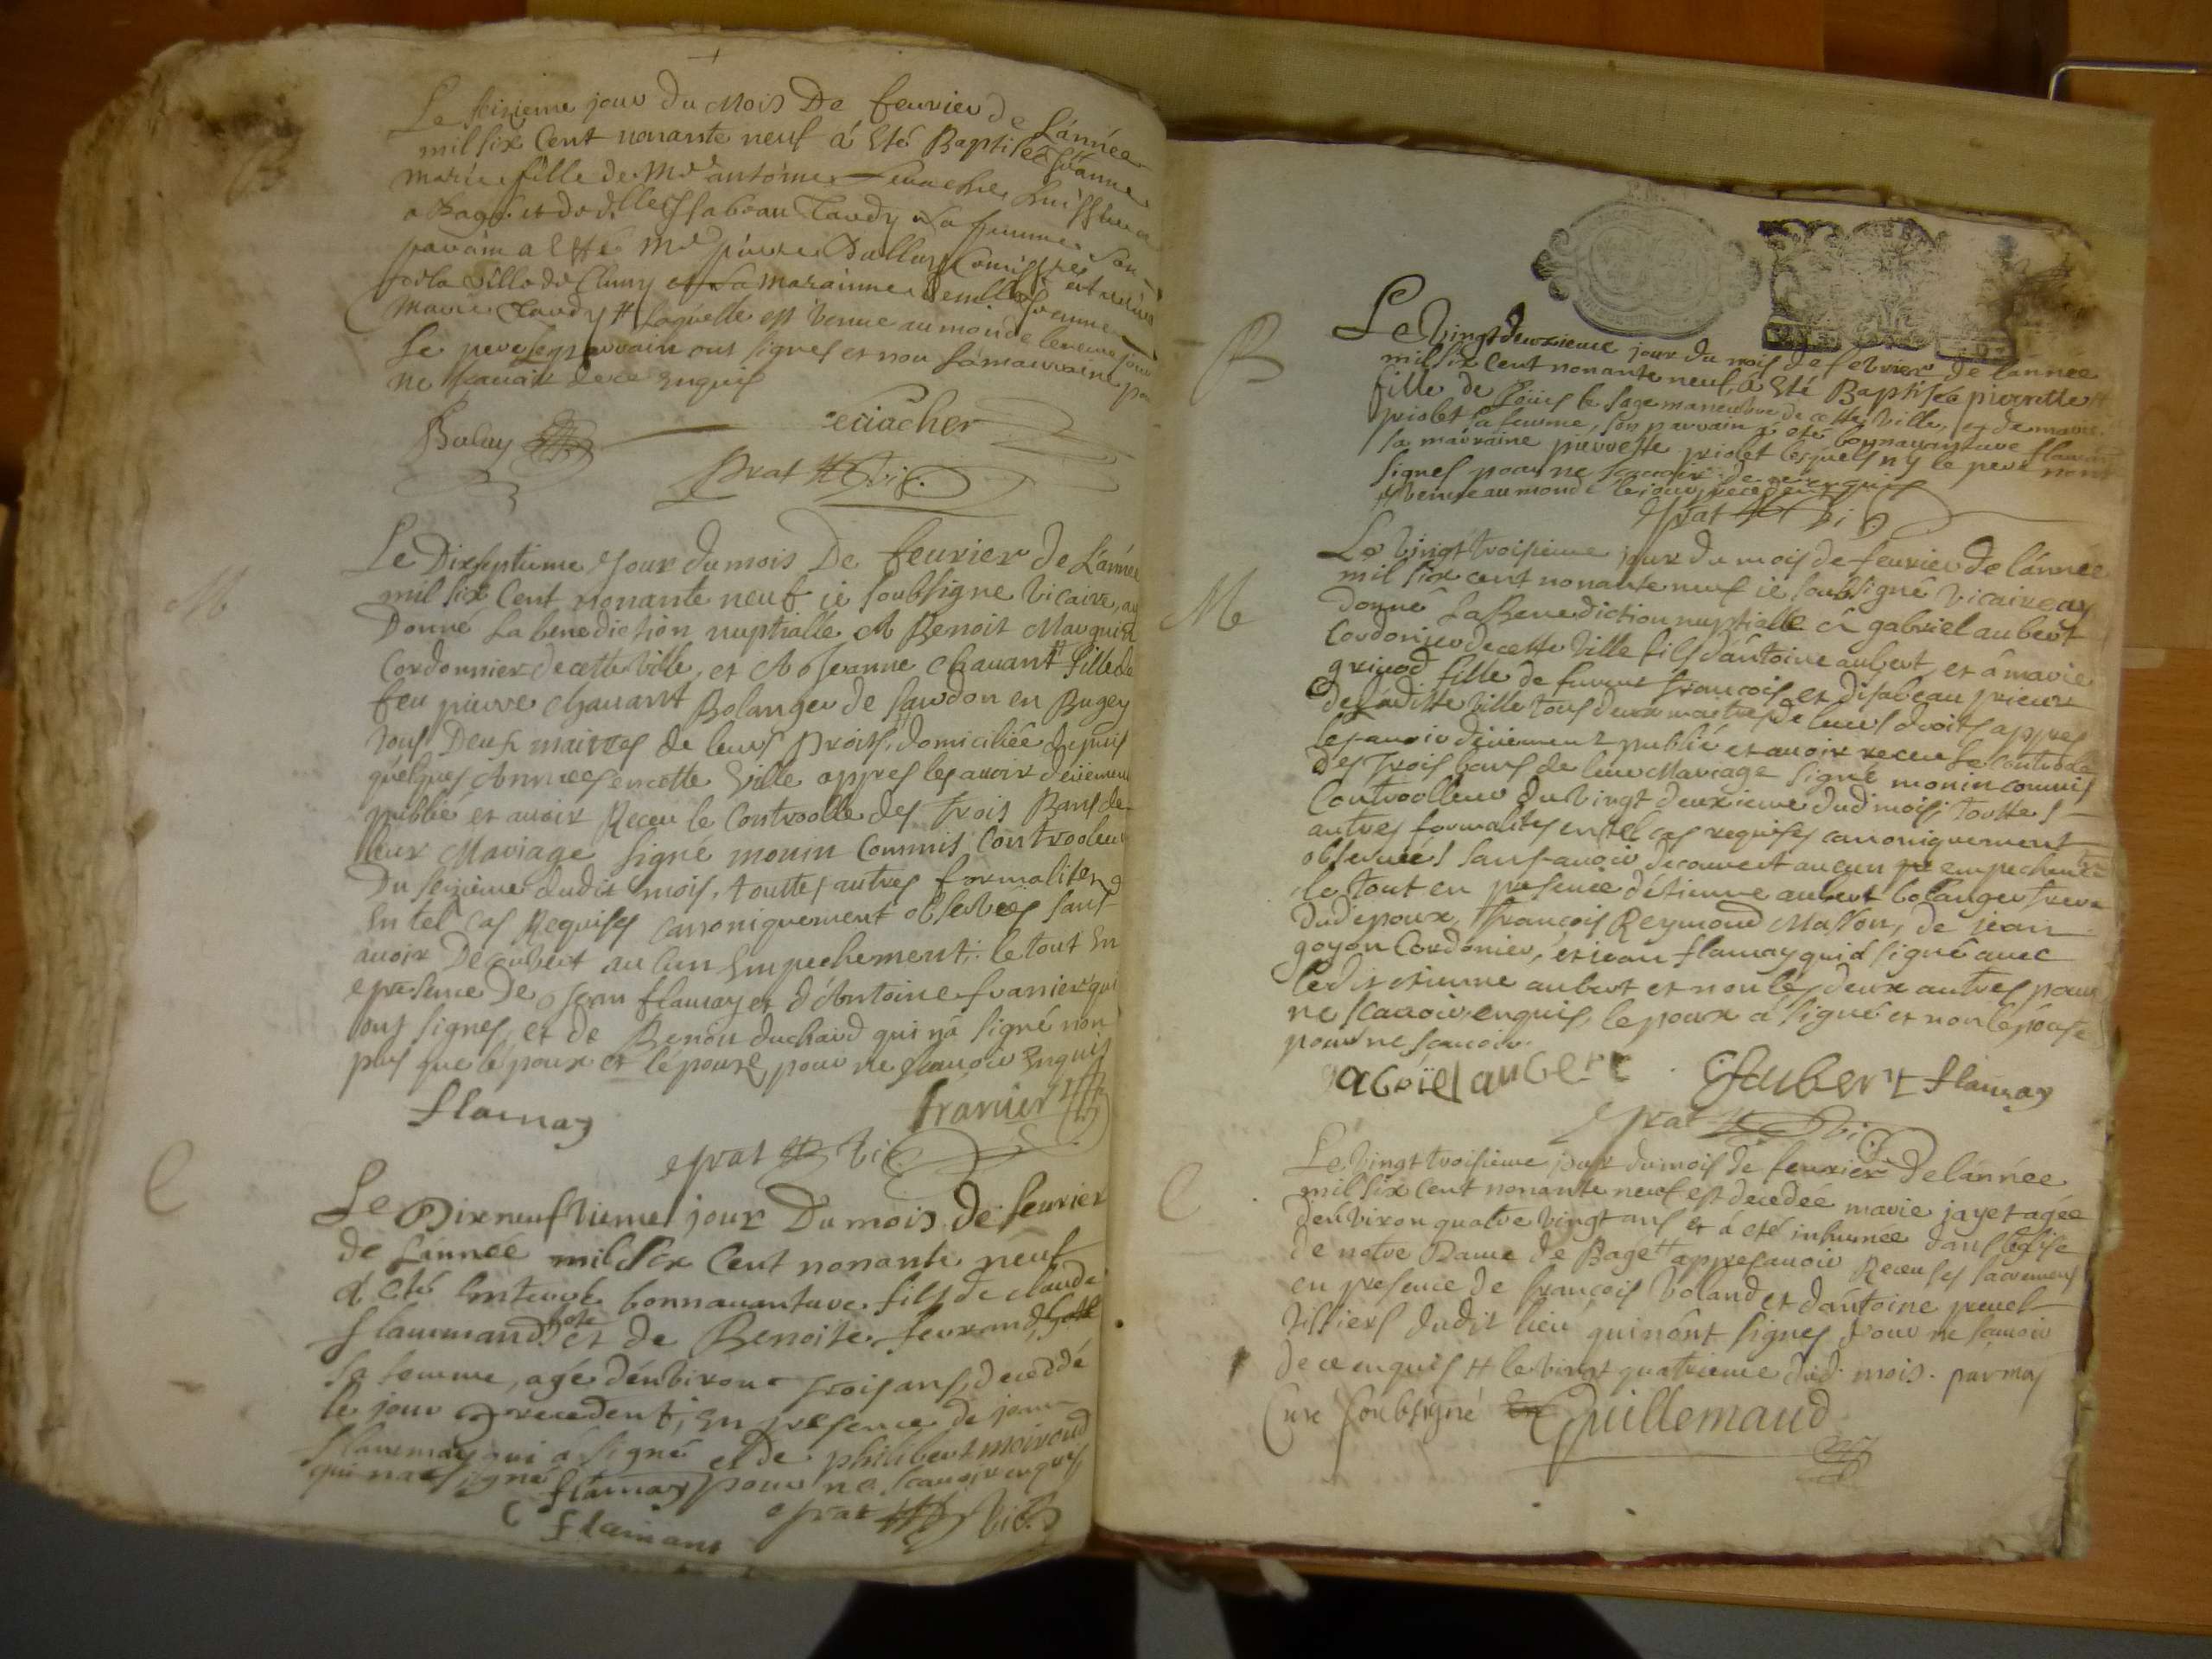 Le seizieme jour du Mois De feuvrier de L'année
mil six Cent nonante neuf á Eté Baptisée Jeanne
Marie fille de Mr antoine huissier
a Bagé et de dlle Isabeau Tardy Sa femme Son
parain a Esté Mr pierre Dallery
de la Ville de Cluny et La Marainne demlle Jeanne
Marie Tardy # Laquelle est venue au monde le jour
Le pere le parrain ont signes et non La marraine pour
ne scavoir de ce Enquis
Prat Vic.
B
M
Le Dixseptieme Jour du mois De feurier de L'année
mil six Cent nonante neuf je soubsigne Vicaire, ay
Donné La benediction nuptialle A Benoit Marquis
Cordonnier de cette Ville, et A Jeanne Chanant # fille de
feu pierre Chanant Bolanger de en Bugey
tous Deux maitres de leurs Droits, domiciliée depuis
quelques Années en cette Ville appres les avoir deüement
publié et avoir Receu le Controolle des trois Bans de
leur Mariage signé monin Commis Controoleur
Du seizieme dudit mois, touttes autres formalites
En tel cas Requises Canoniquement observées sans
avoir Decouvert aucun Empechement; le tout En
presence De Jean flamay et d'Antoine franier qui
ont signes, et de Benoit duchard qui n'a signé non
plus que l'epoux et l'epouse, pour ne scavoir Enquis
flamay franier
prat Vic
C
Le Dix neufvieme jour Du mois de feurier
de L'année mil Six Cent nonante neuf
a eté Enterré bonnauanture fils de claude
flammand hote et de Benoite ferrand,
sa femme, agé d'environ trois ans, decedé
le jour precedent; En presence de jean
flammay qui á signé et de philibert moiroud
qui na signé pour ne scavoir enquis
flamay prat Vic
C flamant
B
Le Vingt deuxieme jour du mois de febvrier de lannée
mil six Cent nonante neuf, à Eté Baptisée pierrette #
fille de Louis le sage maneuvre de cette Ville, et de marie
priolet sa femme, son parrain a eté bonnauanture flamand
sa marraine pierrette priolet lesquels n'y le pere nont
signes pour ne scavoir de ce enquis
# venue au monde le jour precedent
prat Vic
M
Le Vingt troisieme jour du mois de feurier de l'année
mil six cent nonante neuf je soubsigné Vicaire ay
donné La Benediction nuptialle à gabriel aubert
Cordonier de cette Ville fils d'antoine aubert, et á marie
grivod fille de françois, et d'isabeau prieur
de La ditte Ville tous deux maitres de leurs droits appres
les avoir deüement publié et avoir receu le controole
des trois bans de leur Mariage signé monin commis
Controolleur du vingt deuxieme dud. mois; touttes
autres formalites en tel cas requises canoniquement
observées sans avoir decouvert aucun empechement
le tout en presence d'étienne aubert bolanger frere
dud. epoux, françois Reymond Masson, de jean
goyon Cordonier, et jean flamay qui á signé avec
ledit etienne aubert et non les deux autres pour
ne scavoir enquis, lepoux á signé et non l'epouse
pour ne scavoir.
gabriel aubert Eaubert flamay
prat Vic
C
Le Vingt troisieme jour du mois de feurier de l'année
mil six Cent nonante neuf est decedée marie jayet agée
d'environ quatre vingt ans et á eté inhumée dans l'eglise
de notre Dame de Bagé # appres avoir Receu ses sacremens
en presence de françois Voland et d'antoine prevel
tissiers dudit lieu qui n'ont signes pour ne scavoir
de ce enquis # le vingt quatrieme dud. mois. par moy
Curé soubsigné Guillemaud